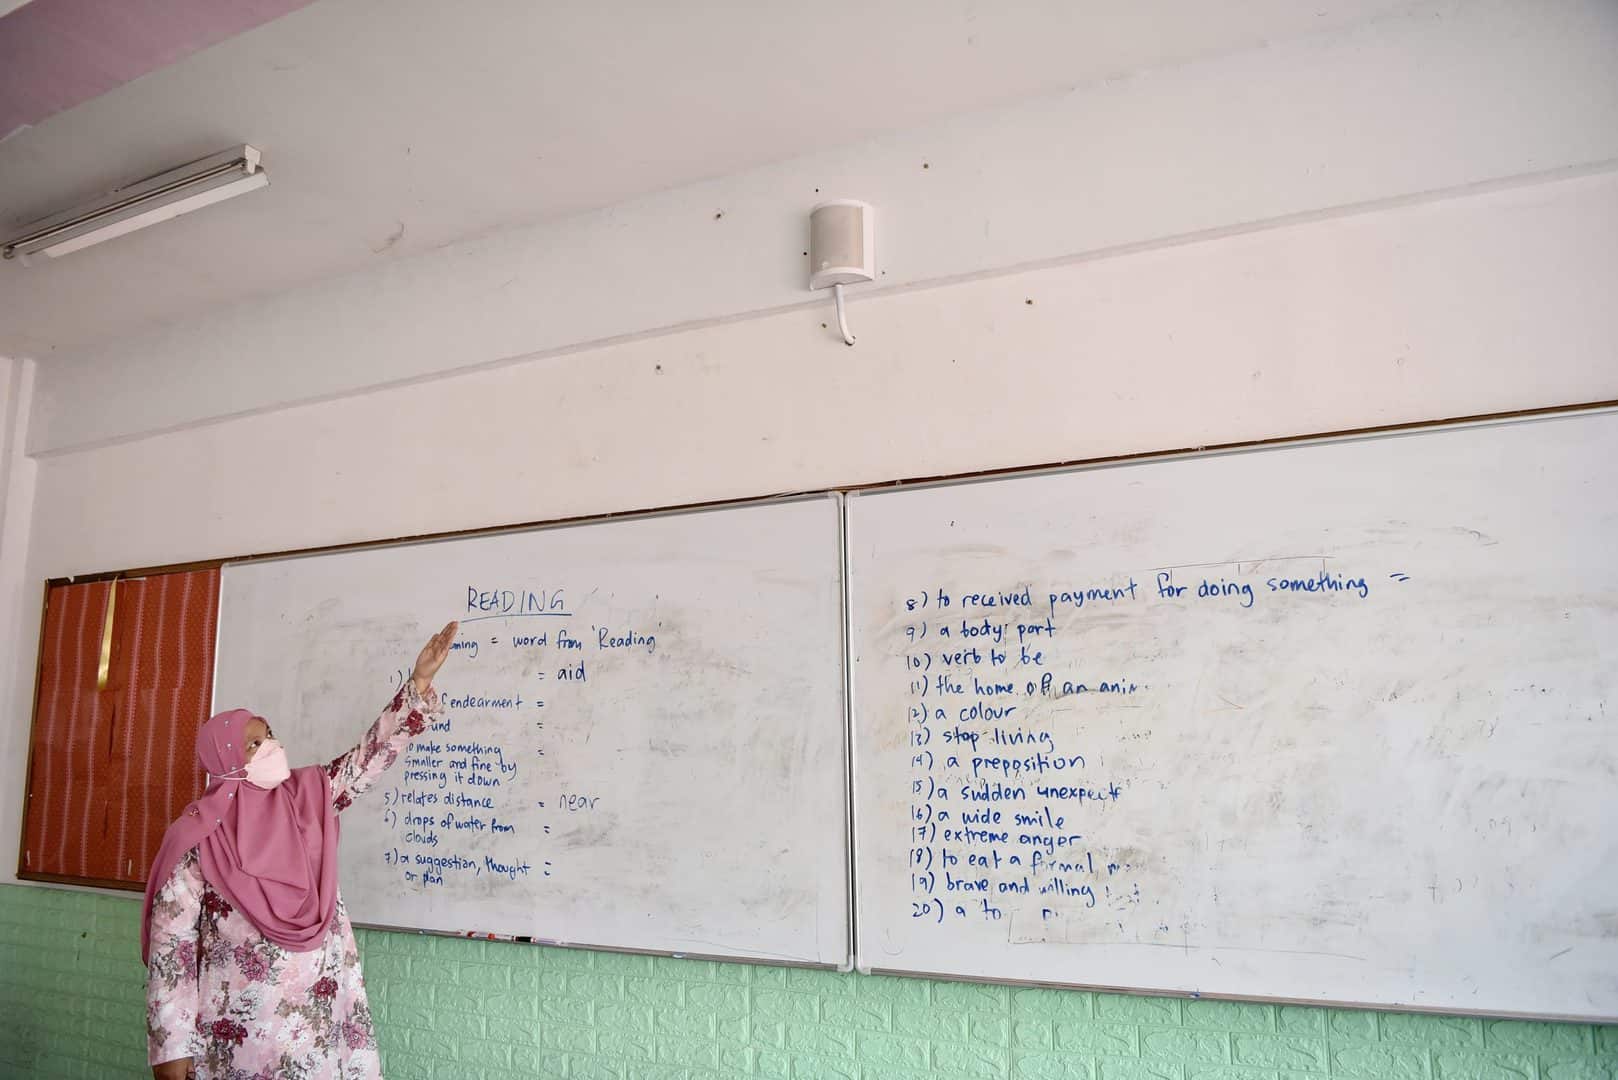 READING
= word from 'Reading'
1) = aid
endearment =
=
to make something =
smaller and fine by
pressing it down
5) relates distance = near
6) drops of water from =
clouds
7) a suggestian, thought =
or plan
8) to received payment for doing something =
9) a body part
10) verb to be
11) the home of an
12) a colour
13) stop living
14) a preposition
15) a sudden unexpect
16) a wide smile
17) extreme anger
18) to eat a formal
19) brave and willing
20) a